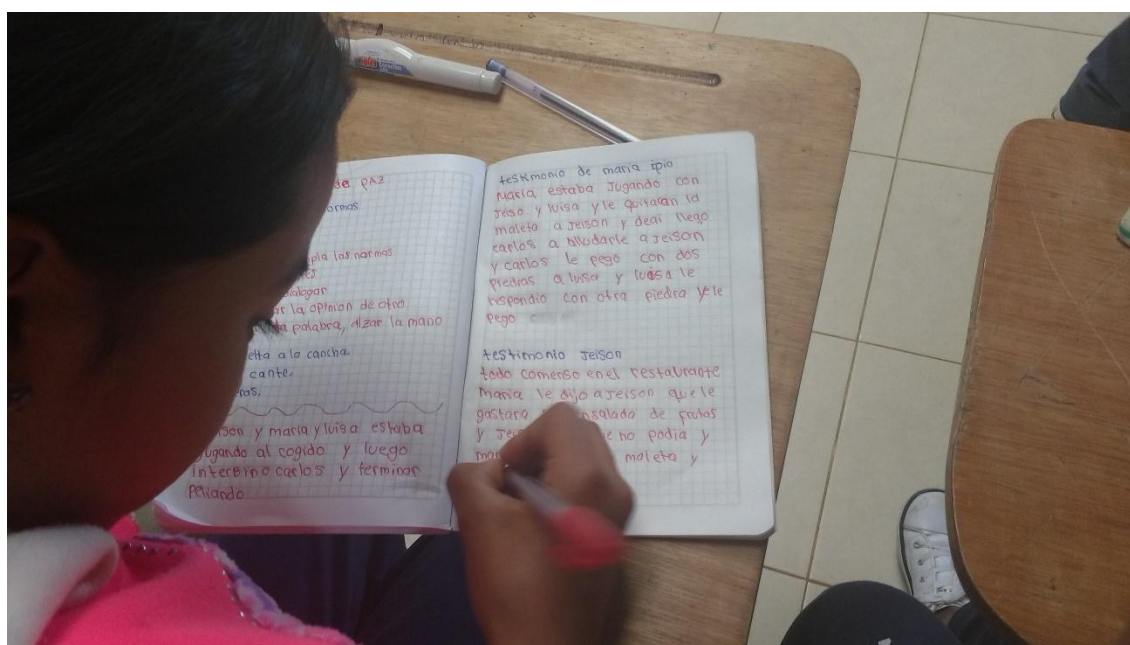 de PAZ
ormas.
pla las normas
dialogar
ar la opinion de otro
la palabra, alzar la mano
elta a la cancha
cante.
ros.
son y maria y luisa estaba
jugando al cogido y luego
interbino carlos y terminar
peliando
testimonio de maria ipio
maria estaba Jugando con
Jeiso y luisa y le quitaran la
maleta a Jeison y deai llego
carlos a a Jeison
y carlos le pego con dos
piedras a luisa y luisa le
respondio con otra piedra y le
pego
testimonio Jeison
todo comenso en el restaurante
maria le dijo a Jeison que le
gastara nsalada de frutas
y Jei e no podia y
mar maleta y